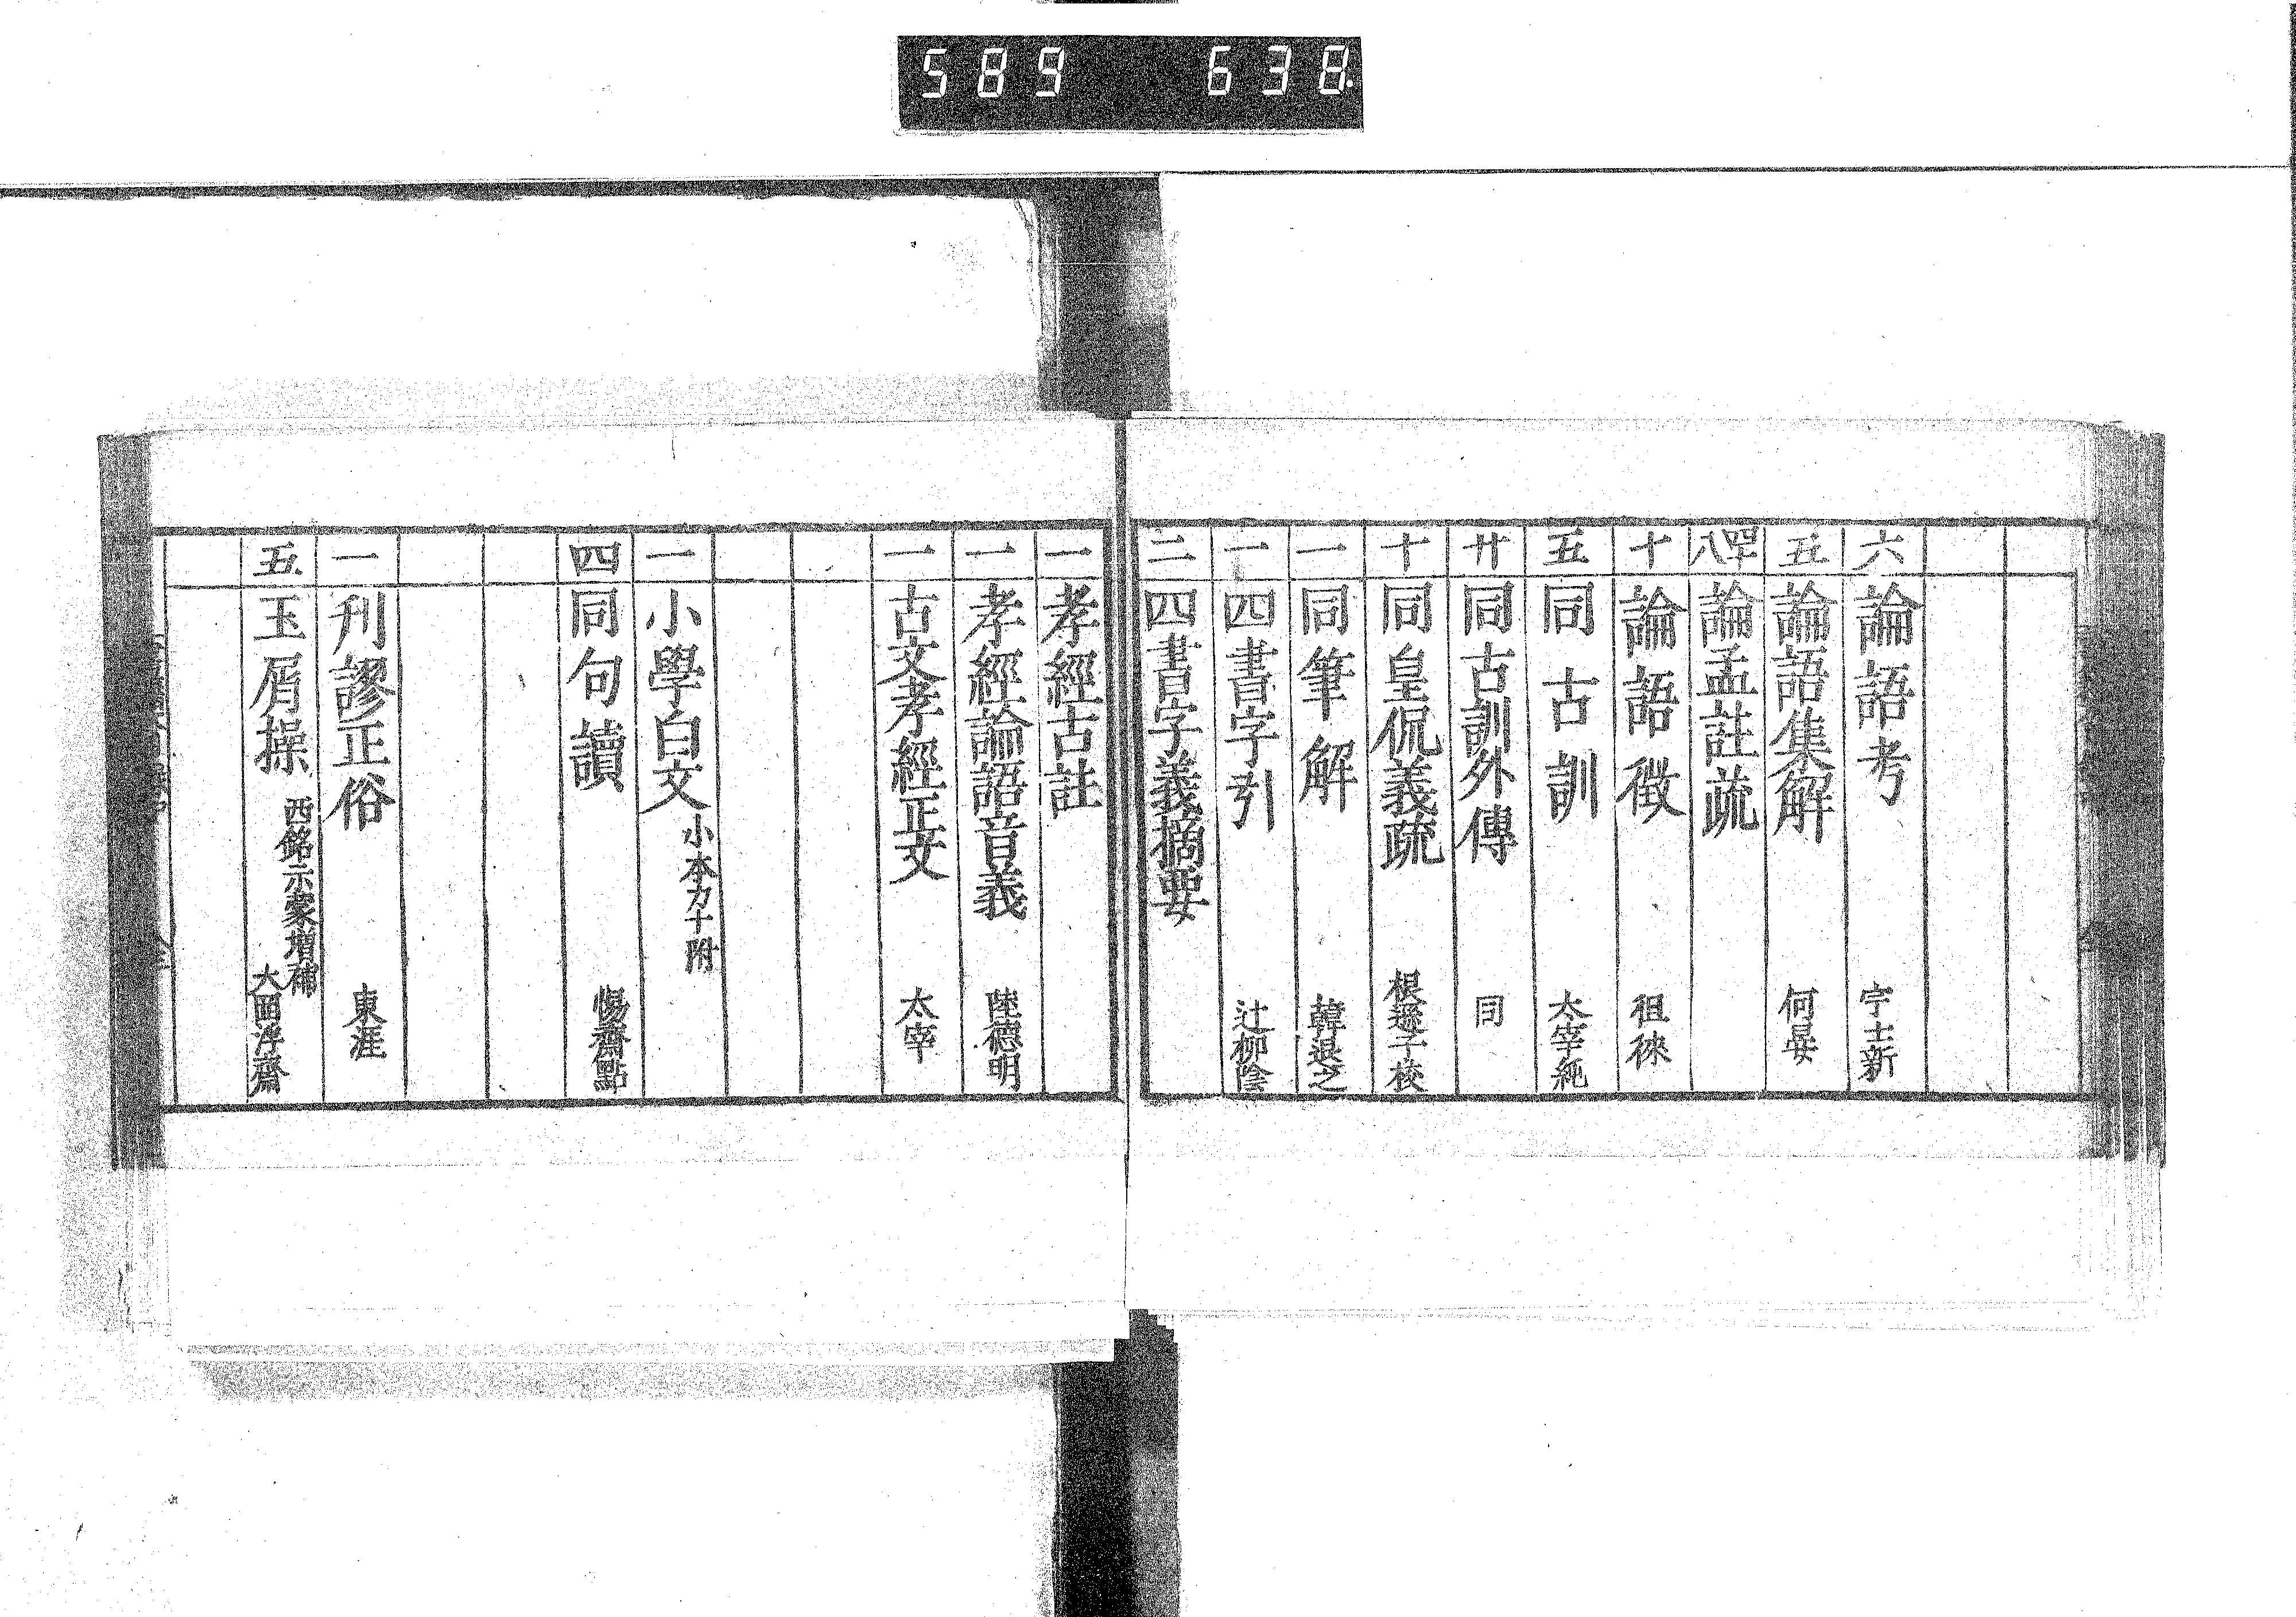 589 638.
六 論語考 宇士新
五 論語集解 何晏
四十八 論孟註疏
十 論語徴 徂徠
五 同古訓 太宰純
廿 同古訓外傳 同
十 同皇侃義疏 根遜子校
一 同筆解 韓退之
一 四書字引 辻柳陰
二 四書字義摘要
一 孝經古註
一 孝經論語音義 陸德明
一 古文孝經正文 太宰
一 小學白文 小本カナ附
四 同句讀 惕齋點
一 刋謬正俗 東涯
五 玉屑操 西銘示蒙増補 大畠浮齋